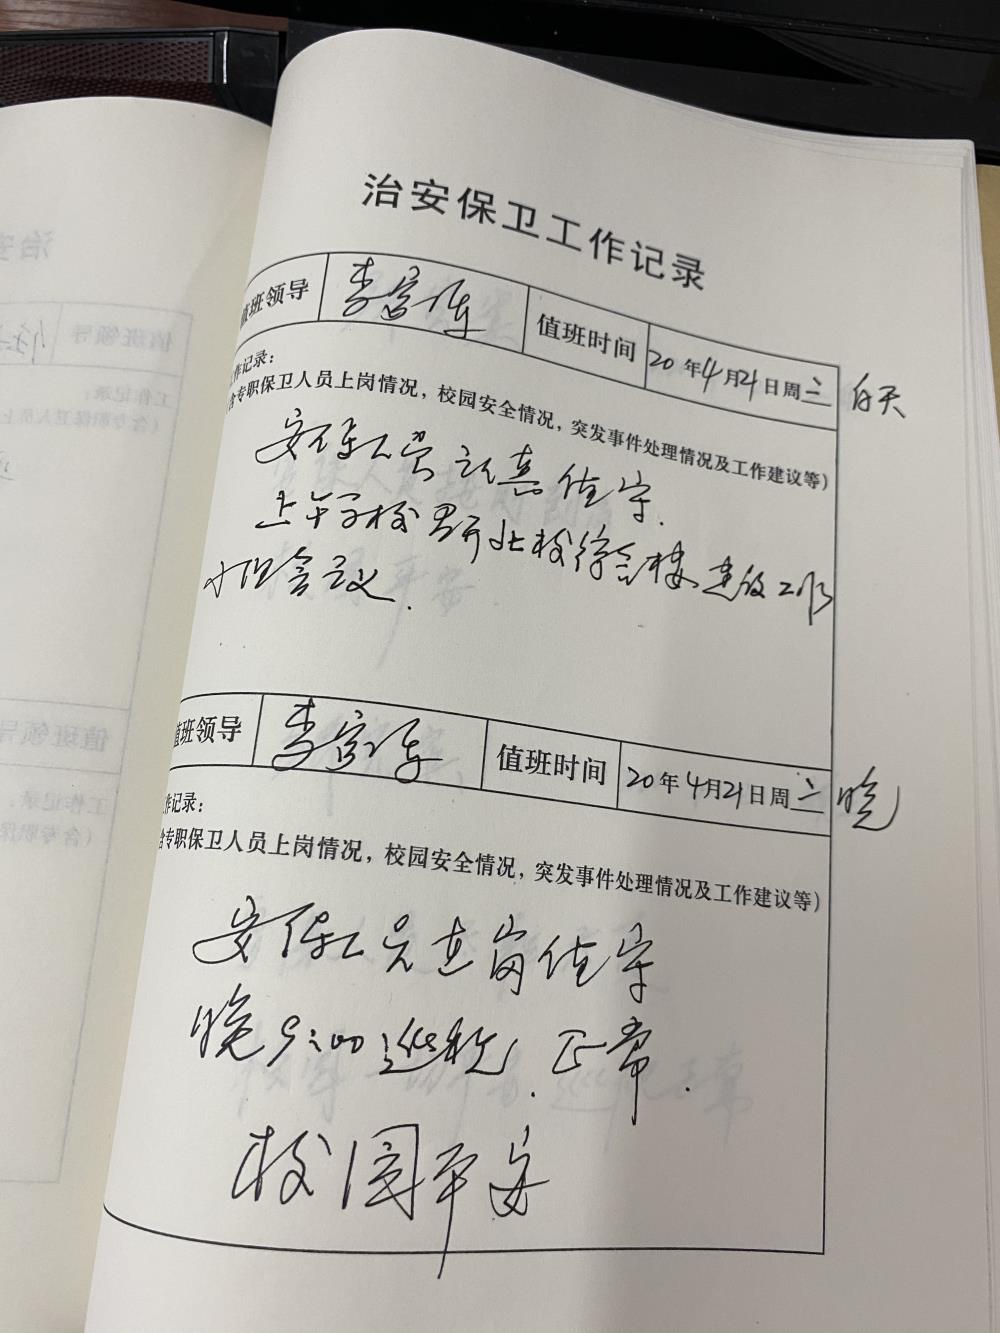 治安保卫工作记录
值班领导 李富 值班时间 20年4月21日周二 白天
工作记录：
含专职保卫人员上岗情况，校园安全情况，突发事件处理情况及工作建议等）
安保人员认真值守.
上午于校 召开北校综合楼建设工作
小组会议.
值班领导 李富 值班时间 20年4月21日周二 晚
工作记录：
含专职保卫人员上岗情况，校园安全情况，突发事件处理情况及工作建议等）
安保人员在岗值守
晚 巡视. 正常.
校园平安
治安
值班领导
工作记录：
（含专职保卫人员上
值班领导
工作记录：
（含专职保